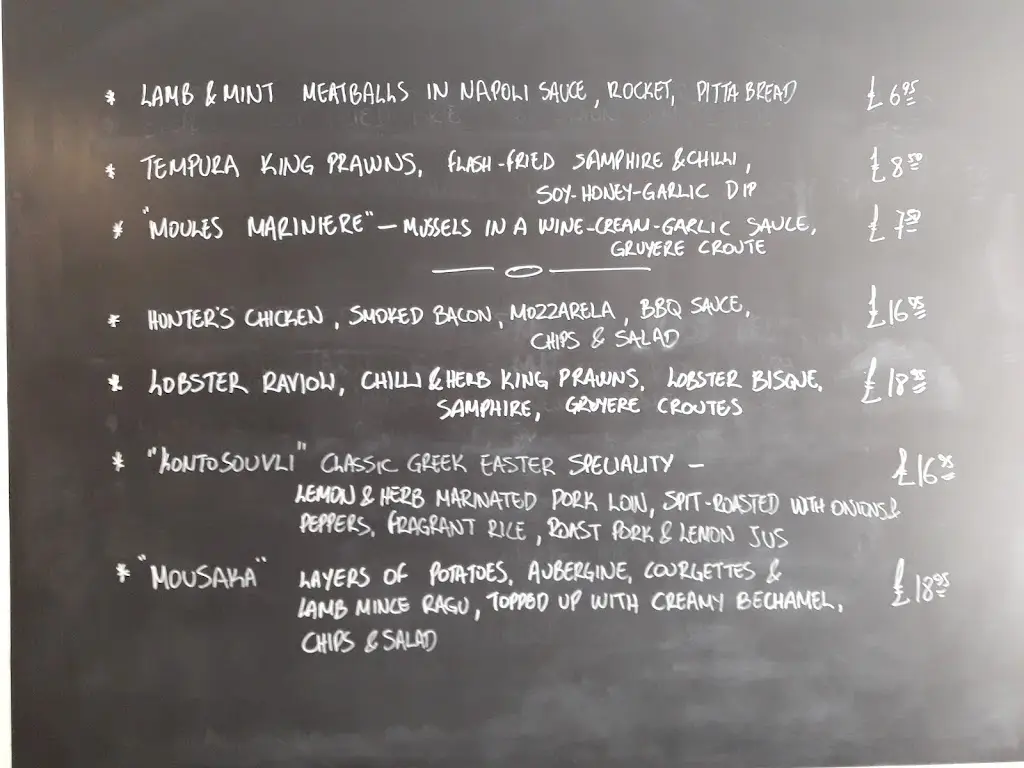 * LAMB & MINT MEATBALLS IN NAPOLI SAUCE, ROCKET, PITTA BREAD £6.95
* TEMPURA KING PRAWNS, FLASH-FRIED SAMPHIRE & CHILLI, £8.50
SOY-HONEY-GARLIC DIP
* "MOULES MARINIERE" – MUSSELS IN A WINE-CREAM-GARLIC SAUCE, £7.50
GRUYERE CROUTE
* HUNTER'S CHICKEN, SMOKED BACON, MOZZARELA, BBQ SAUCE, £16.95
CHIPS & SALAD
* LOBSTER RAVIOLI, CHILLI & HERB KING PRAWNS, LOBSTER BISQUE, £18.95
SAMPHIRE, GRUYERE CROUTES
* "KONTOSOUVLI" CLASSIC GREEK EASTER SPECIALITY – £16.95
LEMON & HERB MARINATED PORK LOIN, SPIT-ROASTED WITH ONIONS &
PEPPERS, FRAGRANT RICE, ROAST PORK & LEMON JUS
* "MOUSAKA" LAYERS OF POTATOES, AUBERGINE, COURGETTES & £18.95
LAMB MINCE RAGU, TOPPED UP WITH CREAMY BECHAMEL,
CHIPS & SALAD